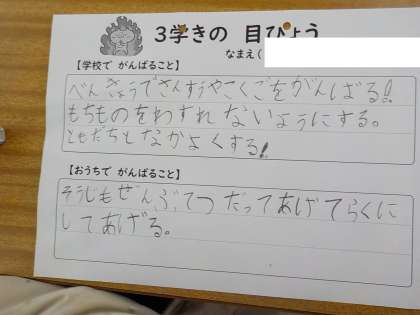 3学きの 目ひょう
なまえ(
【学校で がんばること】
べんきょうでさんすうやこくごをがんばる!!
もちものをわすれないようにする。
ともだちとなかよくする!
【おうちで がんばること】
そうじもぜんぶてつだってあげてらくに
してあげる。